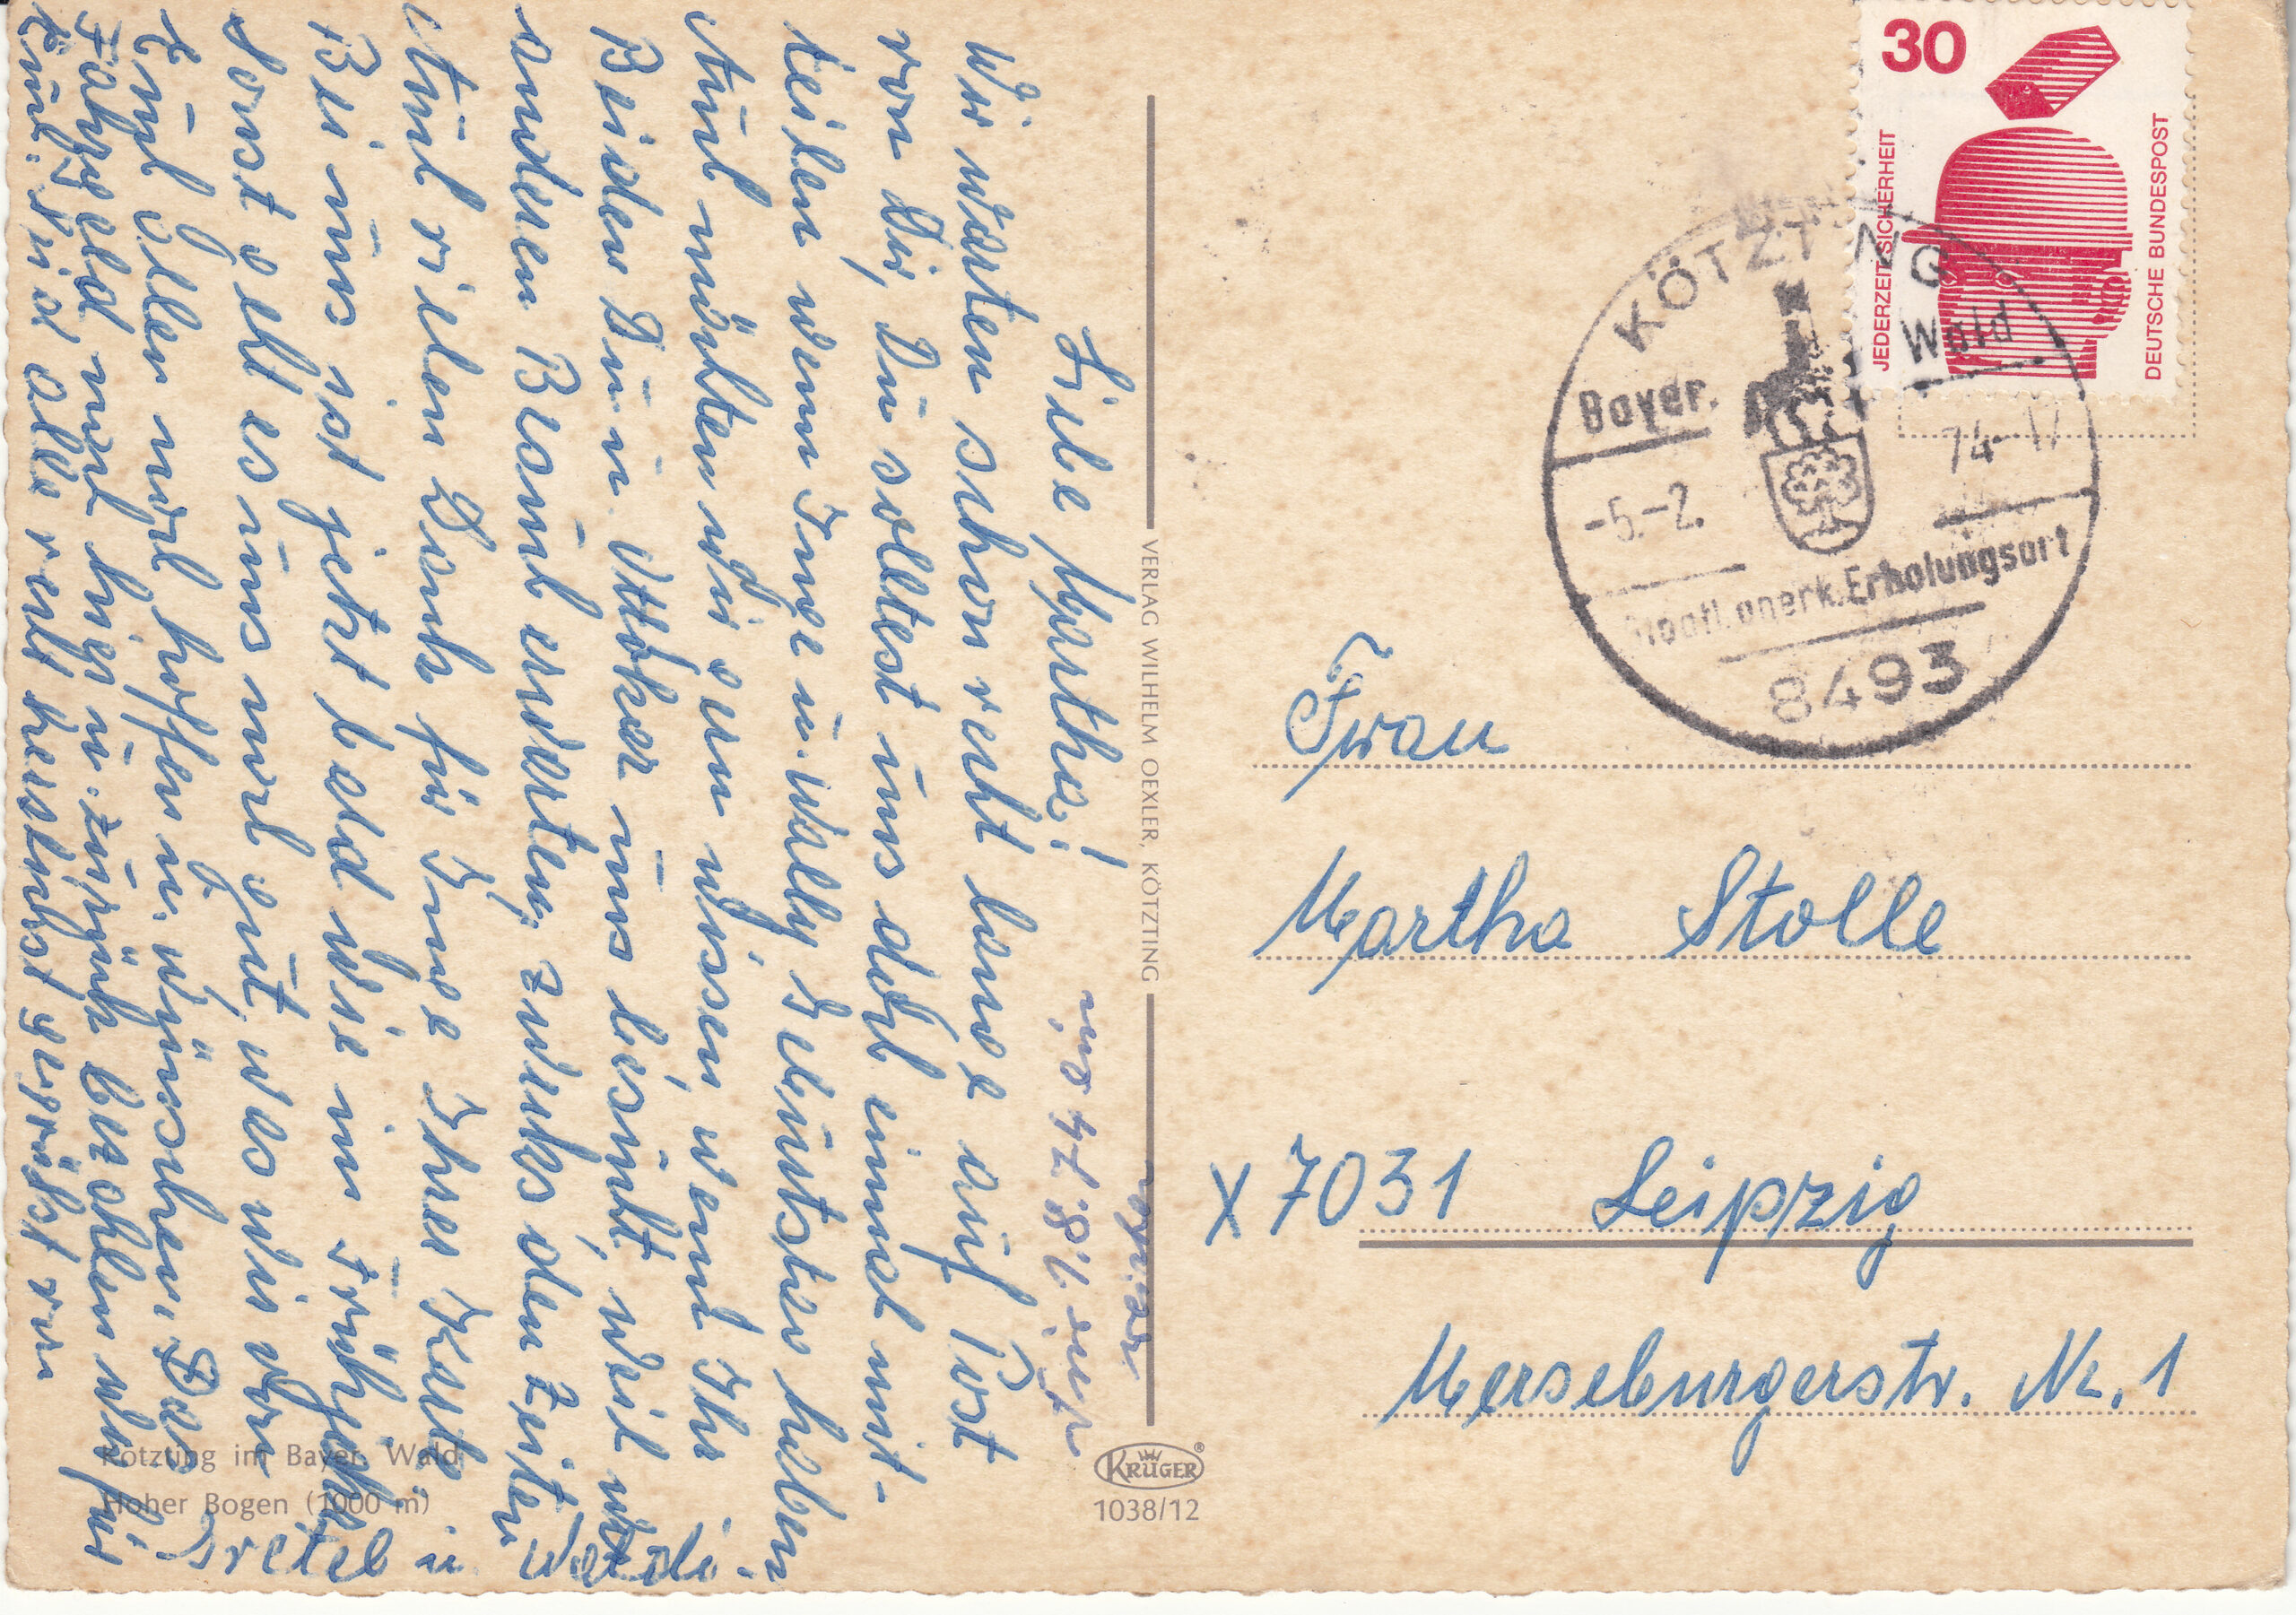 30
JEDERZEIT SICHERHEIT
DEUTSCHE BUNDESPOST
KÖTZTING
Bayer. Wald
-5.-2. 74-17
Staatl. anerk. Erholungsort
8493
Frau
Martha Stolle
X 7031 Leipzig
Merseburgerstr. Nr. 1
VERLAG WILHELM OEXLER, KÖTZTING
KRÜGER
1038/12
Kötzting im Bayer. Wald
Hoher Bogen (1000 m)
Liebe Martha!
Wir warten schon recht lange auf Post
von Dir, Du solltest uns doch einmal mit-
teilen wenn Inge u. Wally Geburtstag haben
Auch möchten wir gern wissen, wenn Ihr
Beiden Du u. Ottokar uns besucht, weil wir
anderen Besuch erwarten, zwecks den Zeiten
Auch vielen Dank für Inge Ihre Karte.
Bei uns ist jetzt bald wie im Frühjahr
Sonst geht es uns noch gut, was wir von
Euch allen noch hoffen u. wünschen. Das
Fahrgeld nach hier u. zurück bezahlen wir für
Euch. Seid alle recht herzlichst gegrüßt von
Gretel u.